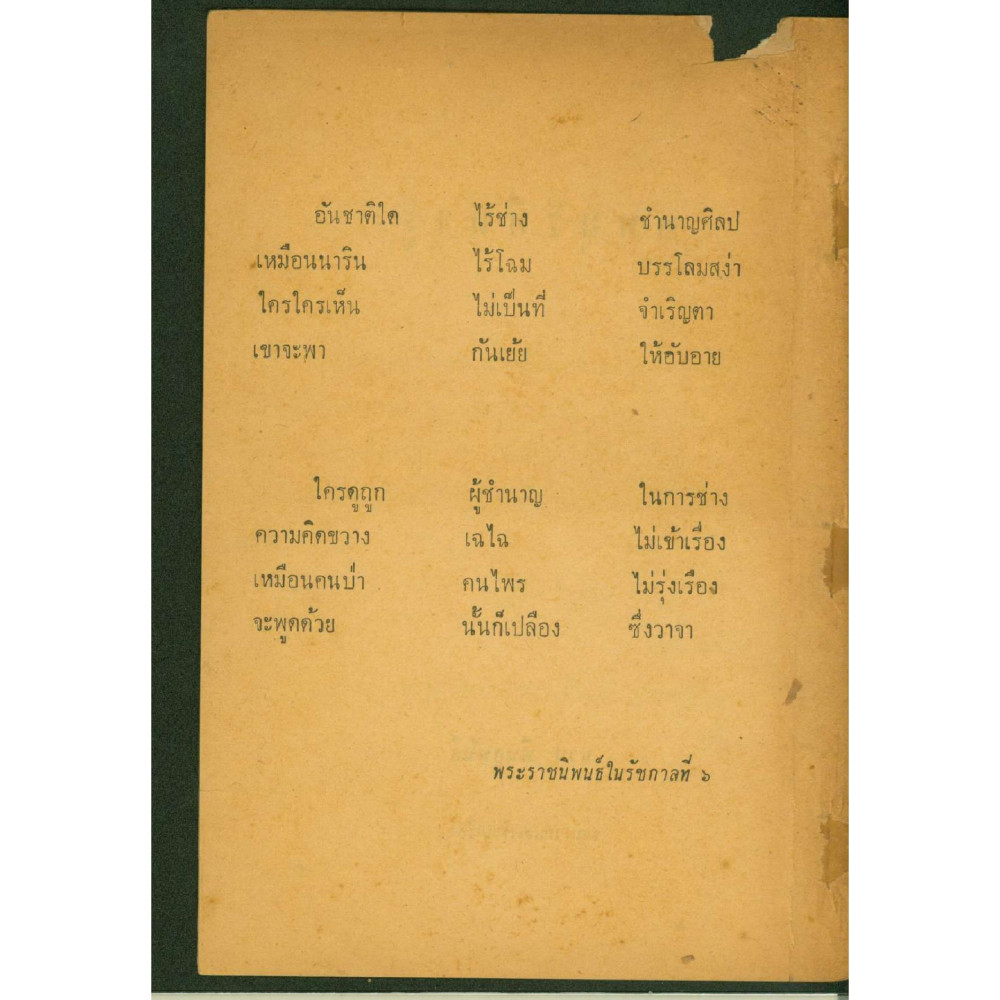 อันชาติใด ไร้ช่าง ชำนาญศิลป
เหมือนนาริน ไร้โฉม บรรโลมสง่า
ใครใครเห็น ไม่เป็นที่ จำเริญตา
เขาจะพา กันเย้ย ให้อับอาย
ใครดูถูก ผู้ชำนาญ ในการช่าง
ความคิดขวาง เฉไฉ ไม่เข้าเรื่อง
เหมือนคนป่า คนไพร ไม่รุ่งเรือง
จะพูดด้วย นั้นก็เปลือง ซึ่งวาจา
พระราชนิพนธ์ในรัชกาลที่ ๖